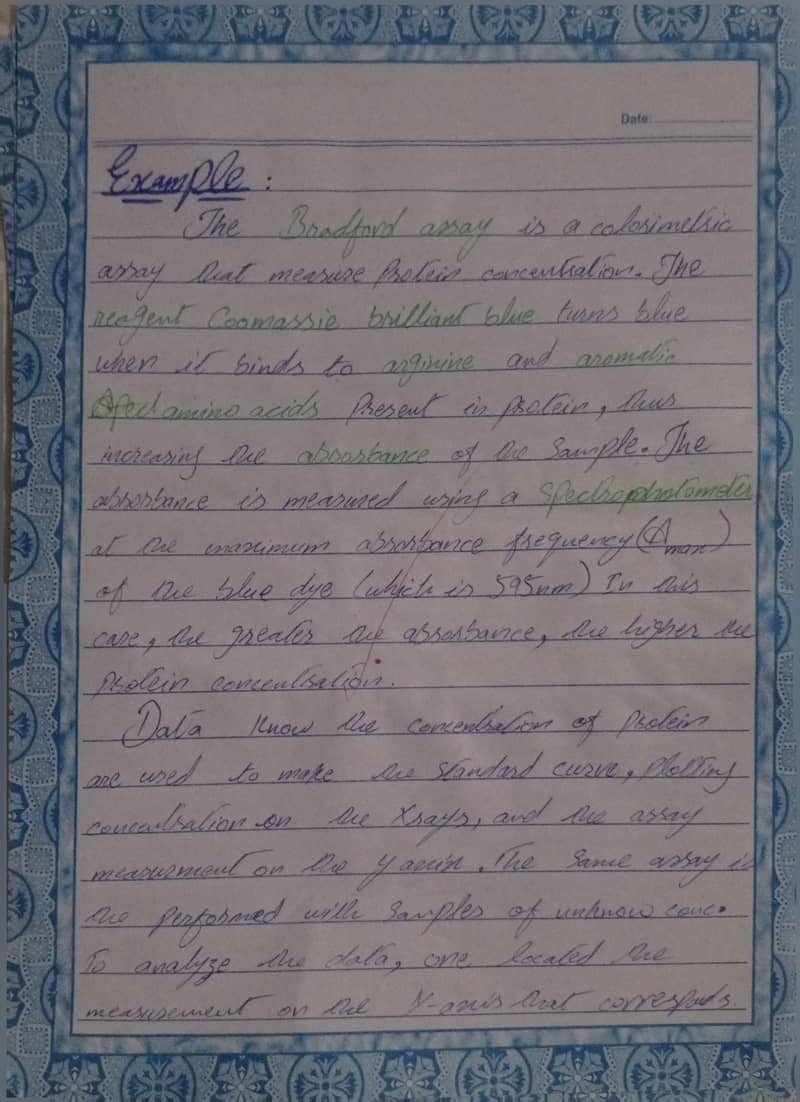 Date:
Example :
The Bradford assay is a colorimetric
assay that measure Protein concentration. The
reagent Coomassie brilliant blue turns blue
when it binds to arginine and aromatic
amino acids Present in protein, thus
increasing the absorbance of the Sample. The
absorbance is measured using a Spectrophotometer,
at the maximum absorbance frequency (Amax)
of the blue dye (which is 595nm) In this
case, the greater the absorbance, the higher the
Protein concentration.
Data Know the concentration of Protein
are used to make the Standard curve, Plotting
concentration on the Xrays, and the assay
measurment on the Y axis. The Same assay is
the Performed with Samples of unknow conc.
To analyze the data, one located the
measurement on the Y-axis that